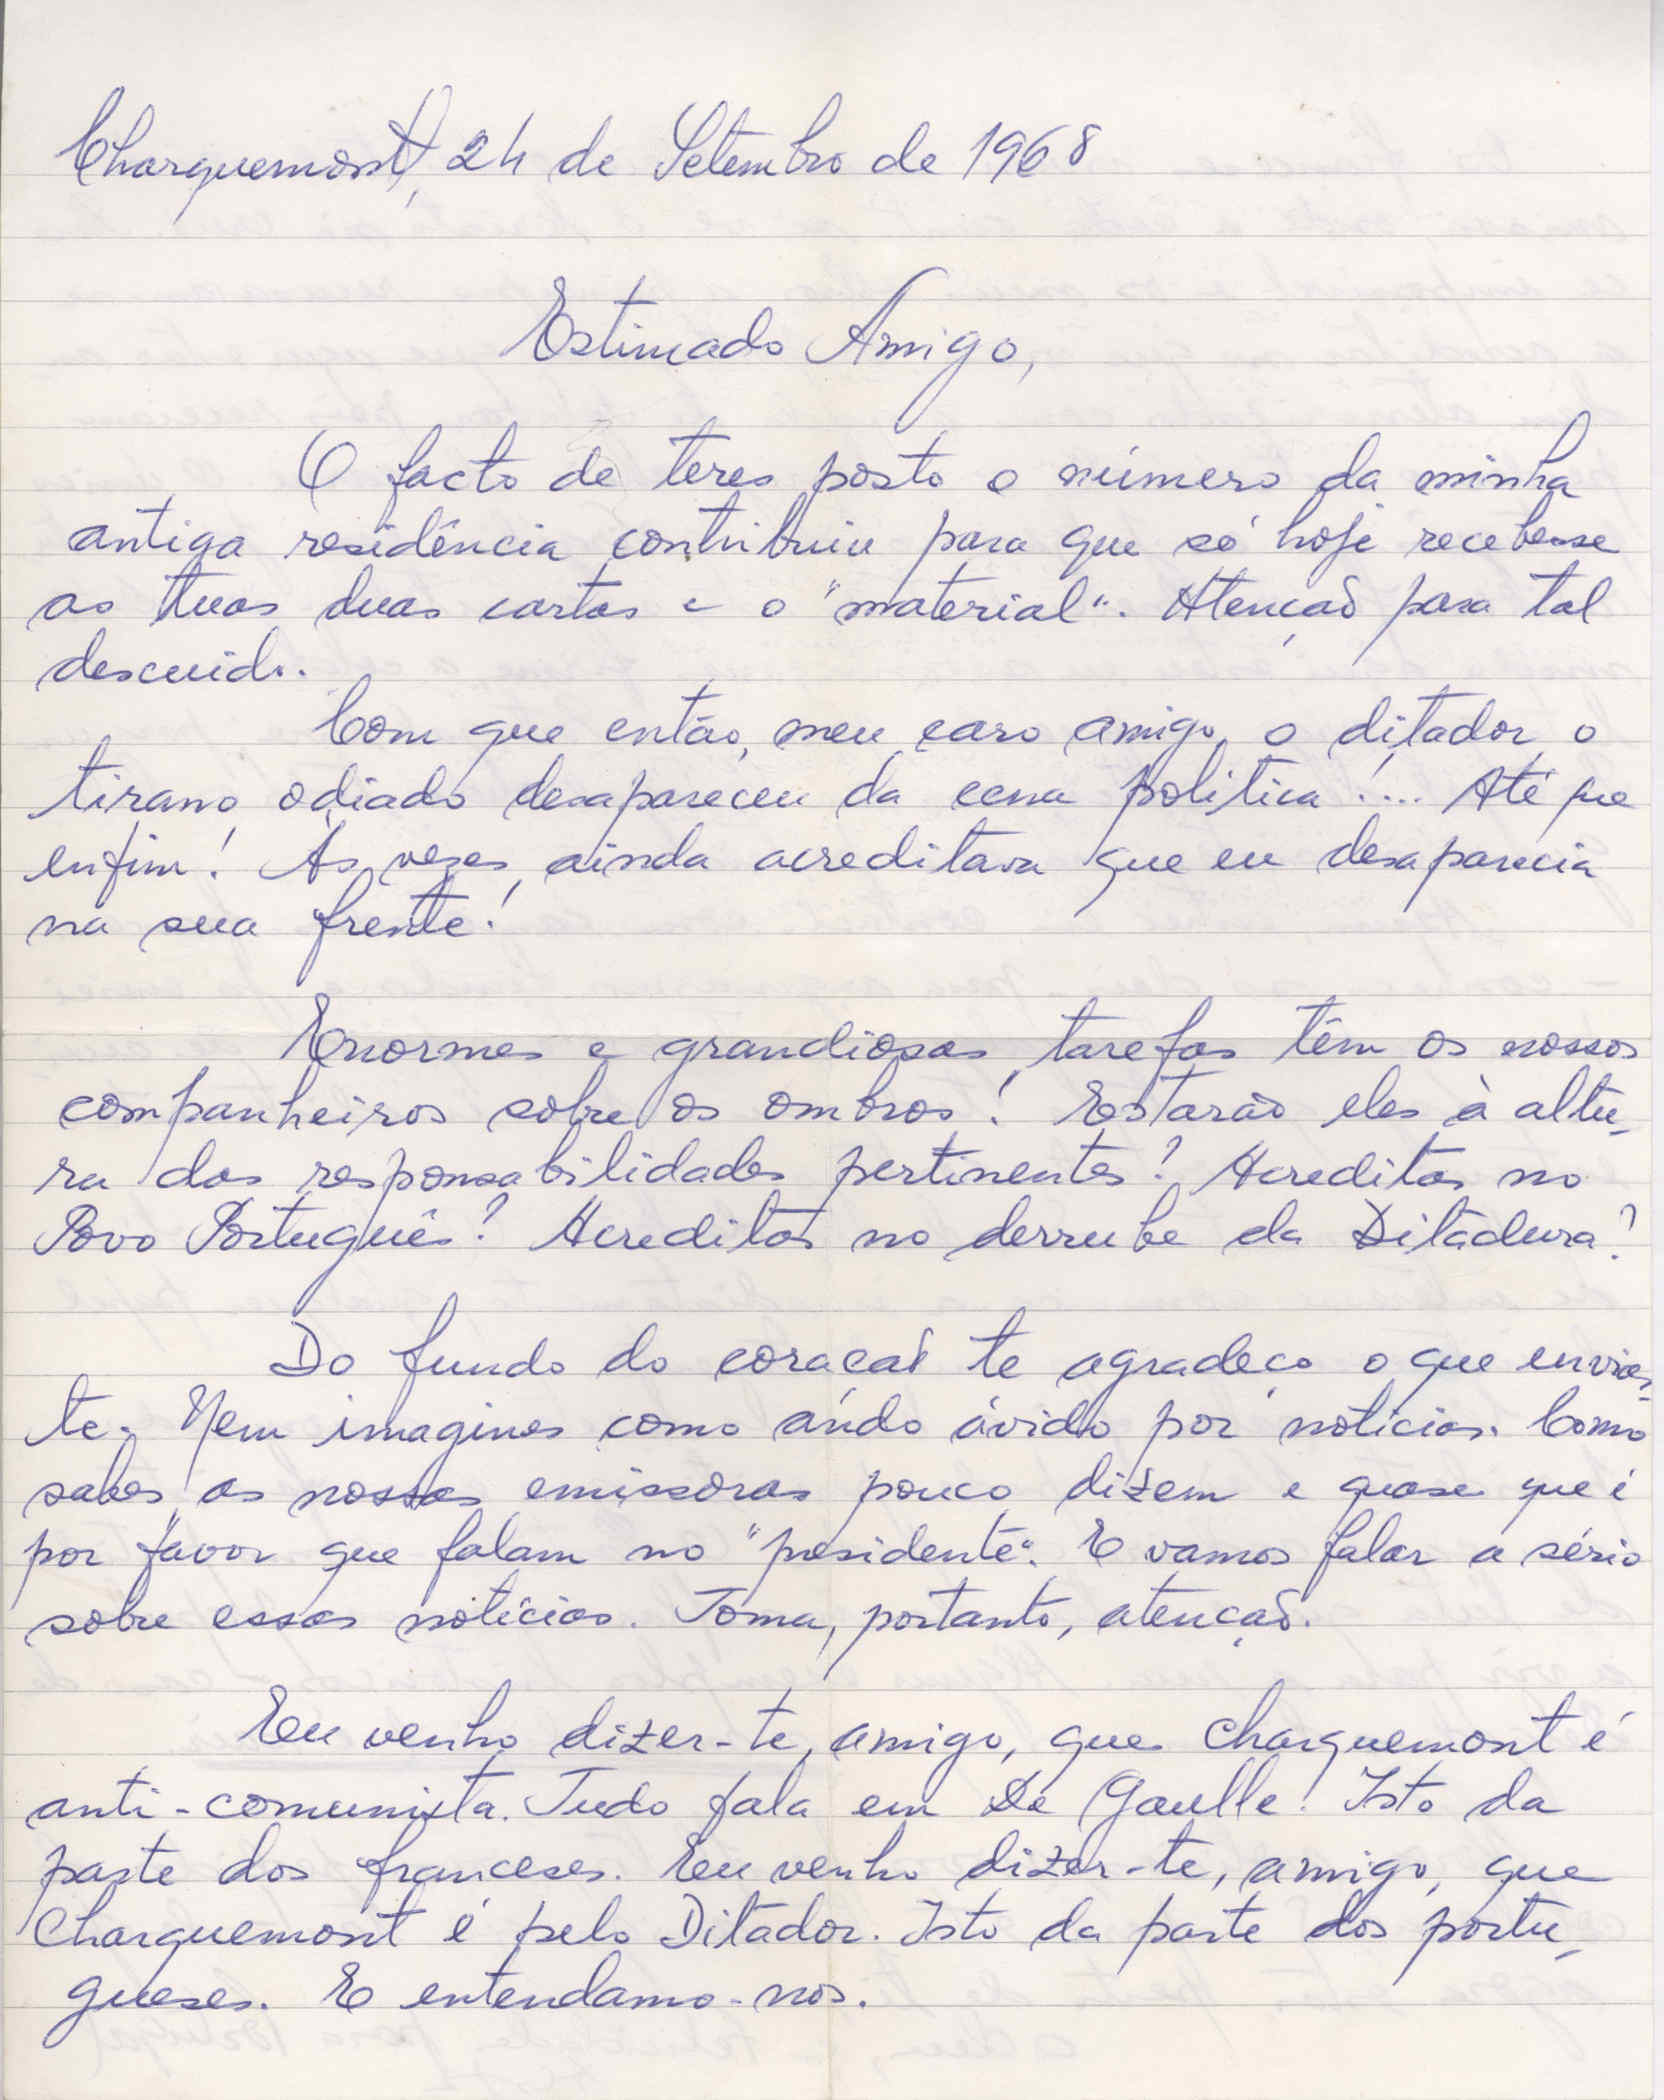 Charquemont, 24 de Setembro de 1968
Estimado Amigo,
O facto de teres posto o número da minha
antiga residência contribuiu para que só hoje recebesse
as tuas duas cartas e o "material". Atenção para tal
descuido.
Com que então, meu caro amigo, o ditador, o
tirano odiado desapareceu da cena política!... Até que
enfim! Às vezes, ainda acreditava que eu desaparecia
na sua frente!
Enormes e grandiosas tarefas têm os nossos
companheiros sobre os ombros! Estarão eles à altu-
ra das responsabilidades pertinentes? Acreditas no
Povo Português? Acreditas no derrube da Ditadura?
Do fundo do coração te agradeço o que envias-
te. Nem imagines como ando ávido por notícias. Como
sabes, as nossas emissoras pouco dizem e quase que é
por favor que falam no "presidente". E vamos falar a sério
sobre essas notícias. Toma, portanto, atenção.
Eu venho dizer-te, amigo, que Charquemont é
anti-comunista. Tudo fala em De Gaulle! Isto da
parte dos franceses. Eu venho dizer-te, amigo, que
Charquemont é pelo Ditador. Isto da parte dos portu-
gueses. E entendamo-nos.